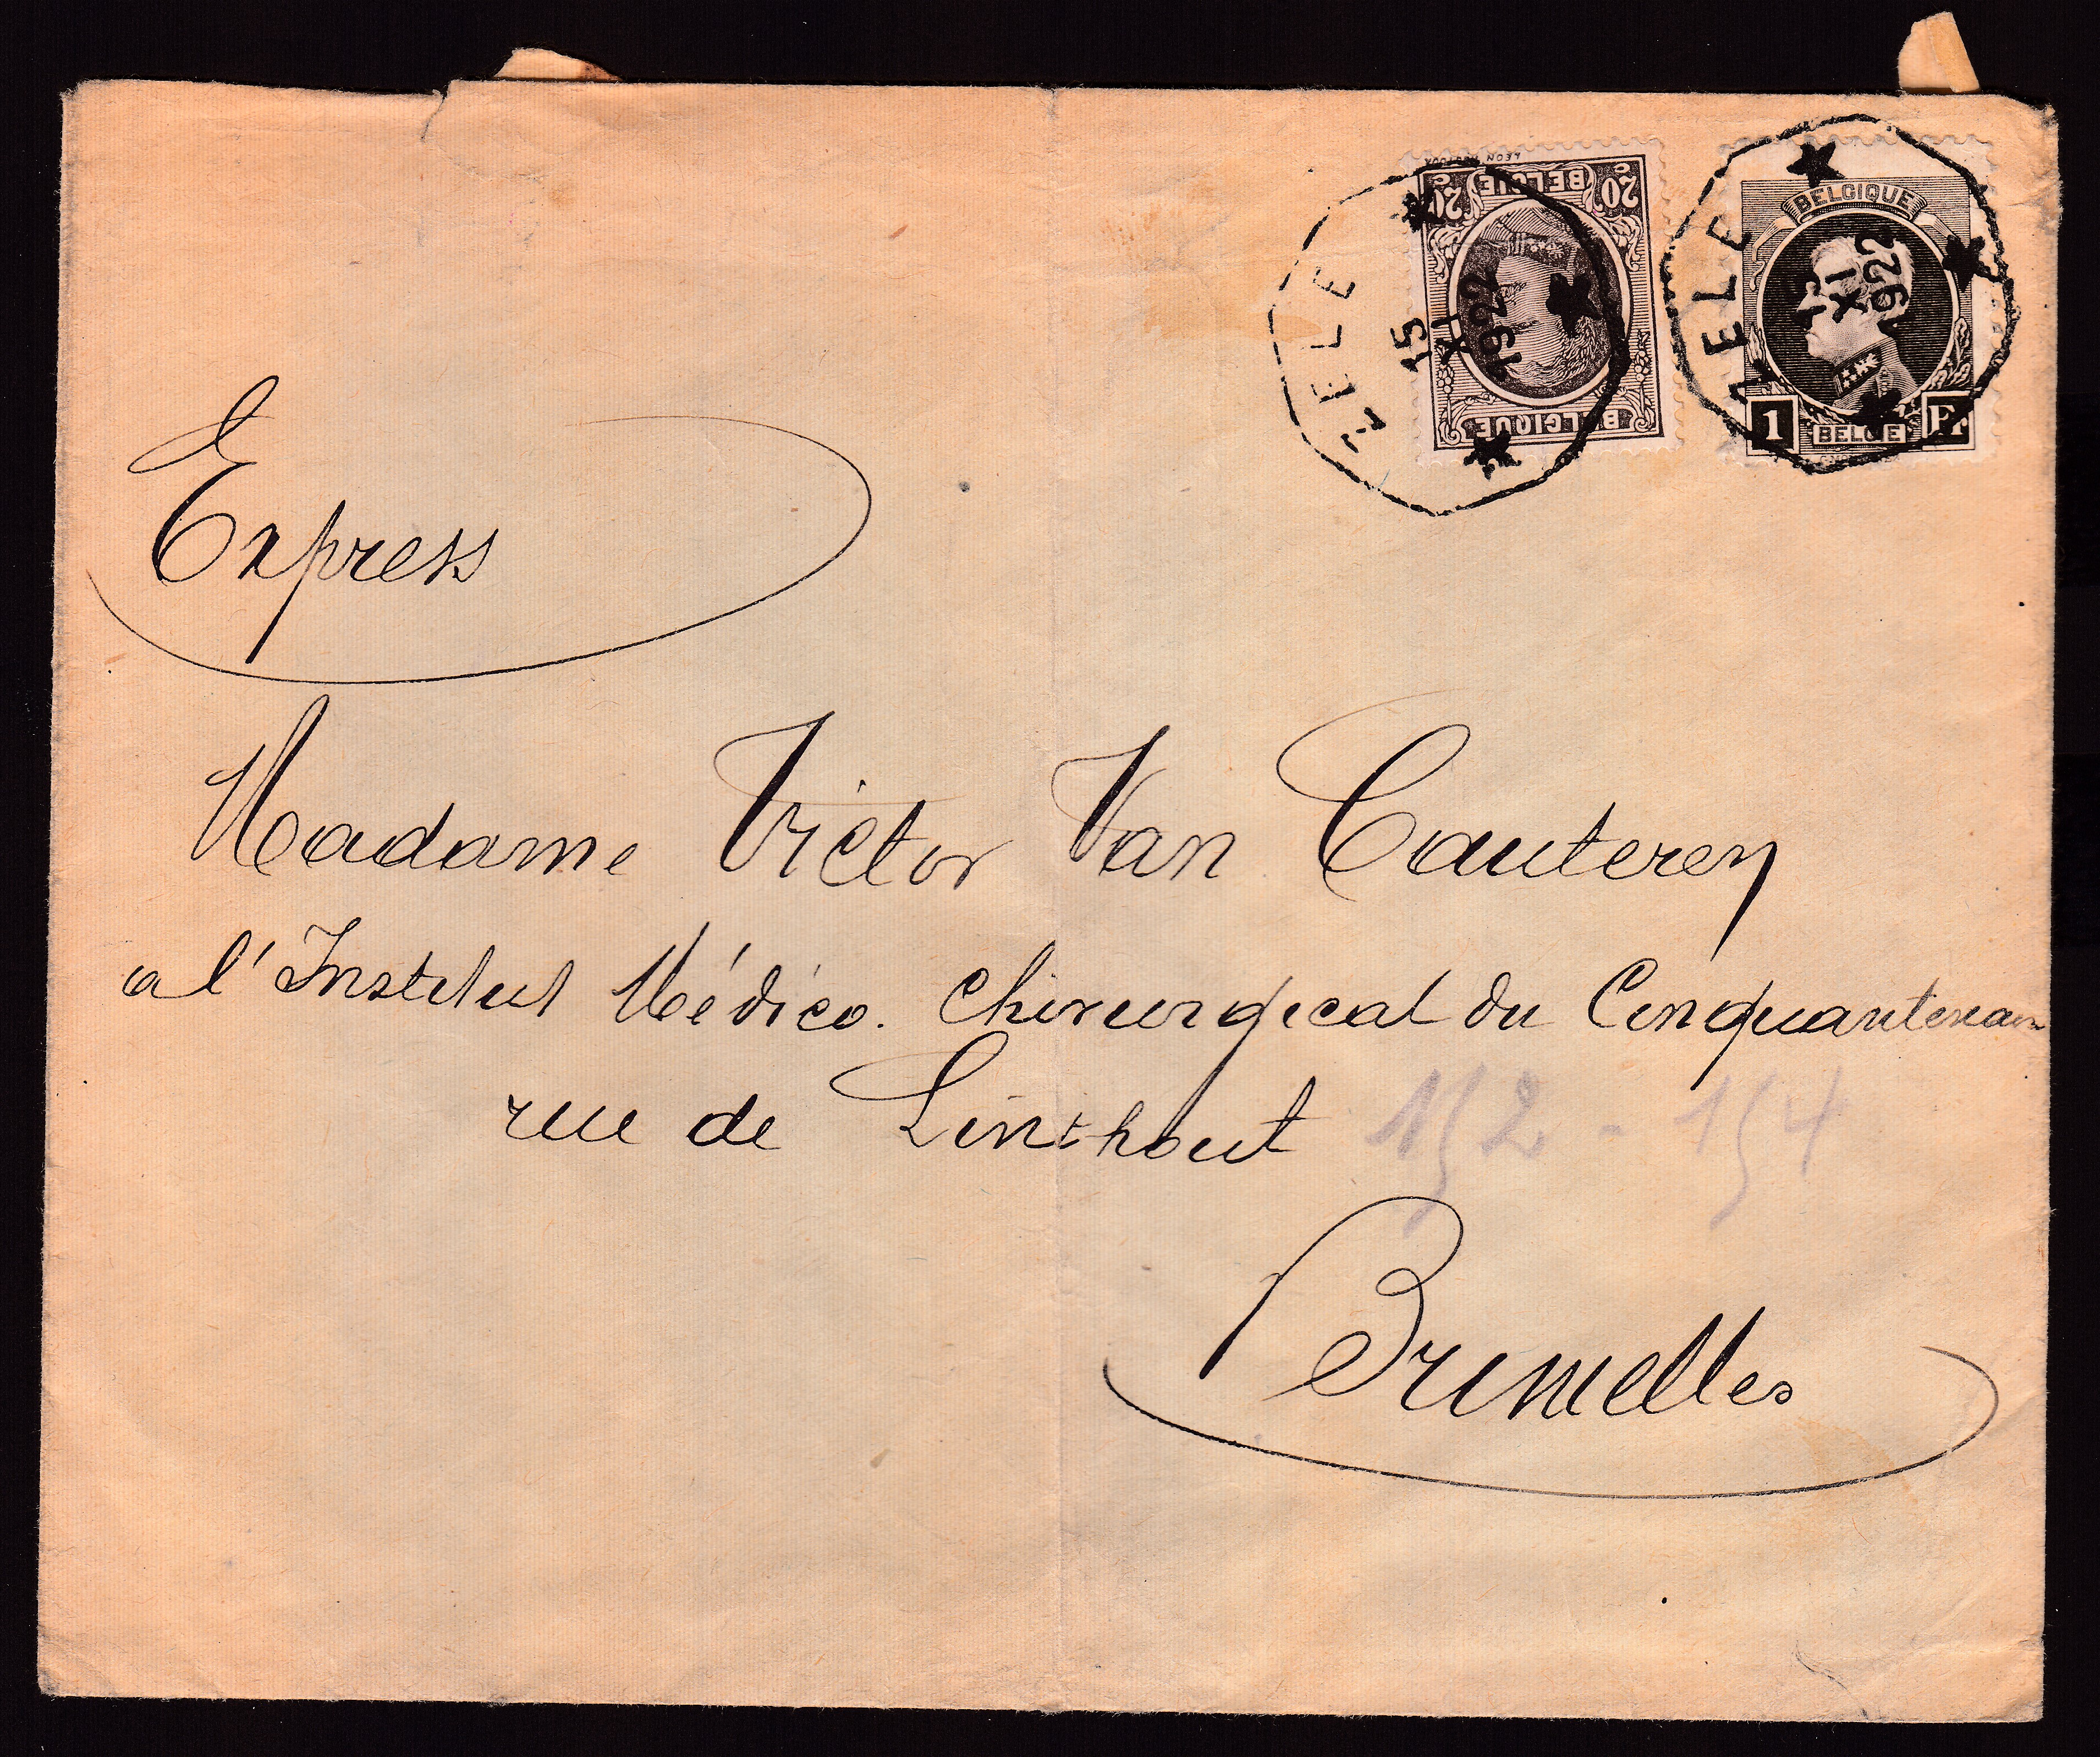 LEON
20c BELGIE 20c
BELGIQUE
ZELE
15
XI
1922
BELGIQUE
1 BELGIE Fr
ZELE
15
XI
1922
Express
Madame Victor Van Cauteren
a l'Institut Médico. Chirurgical du Cinquantenair
rue de Linthout 152 - 154
Bruxelles